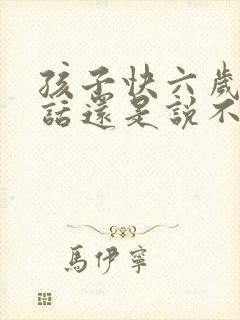 孩子快六歲
話還是說不
馬伊寧